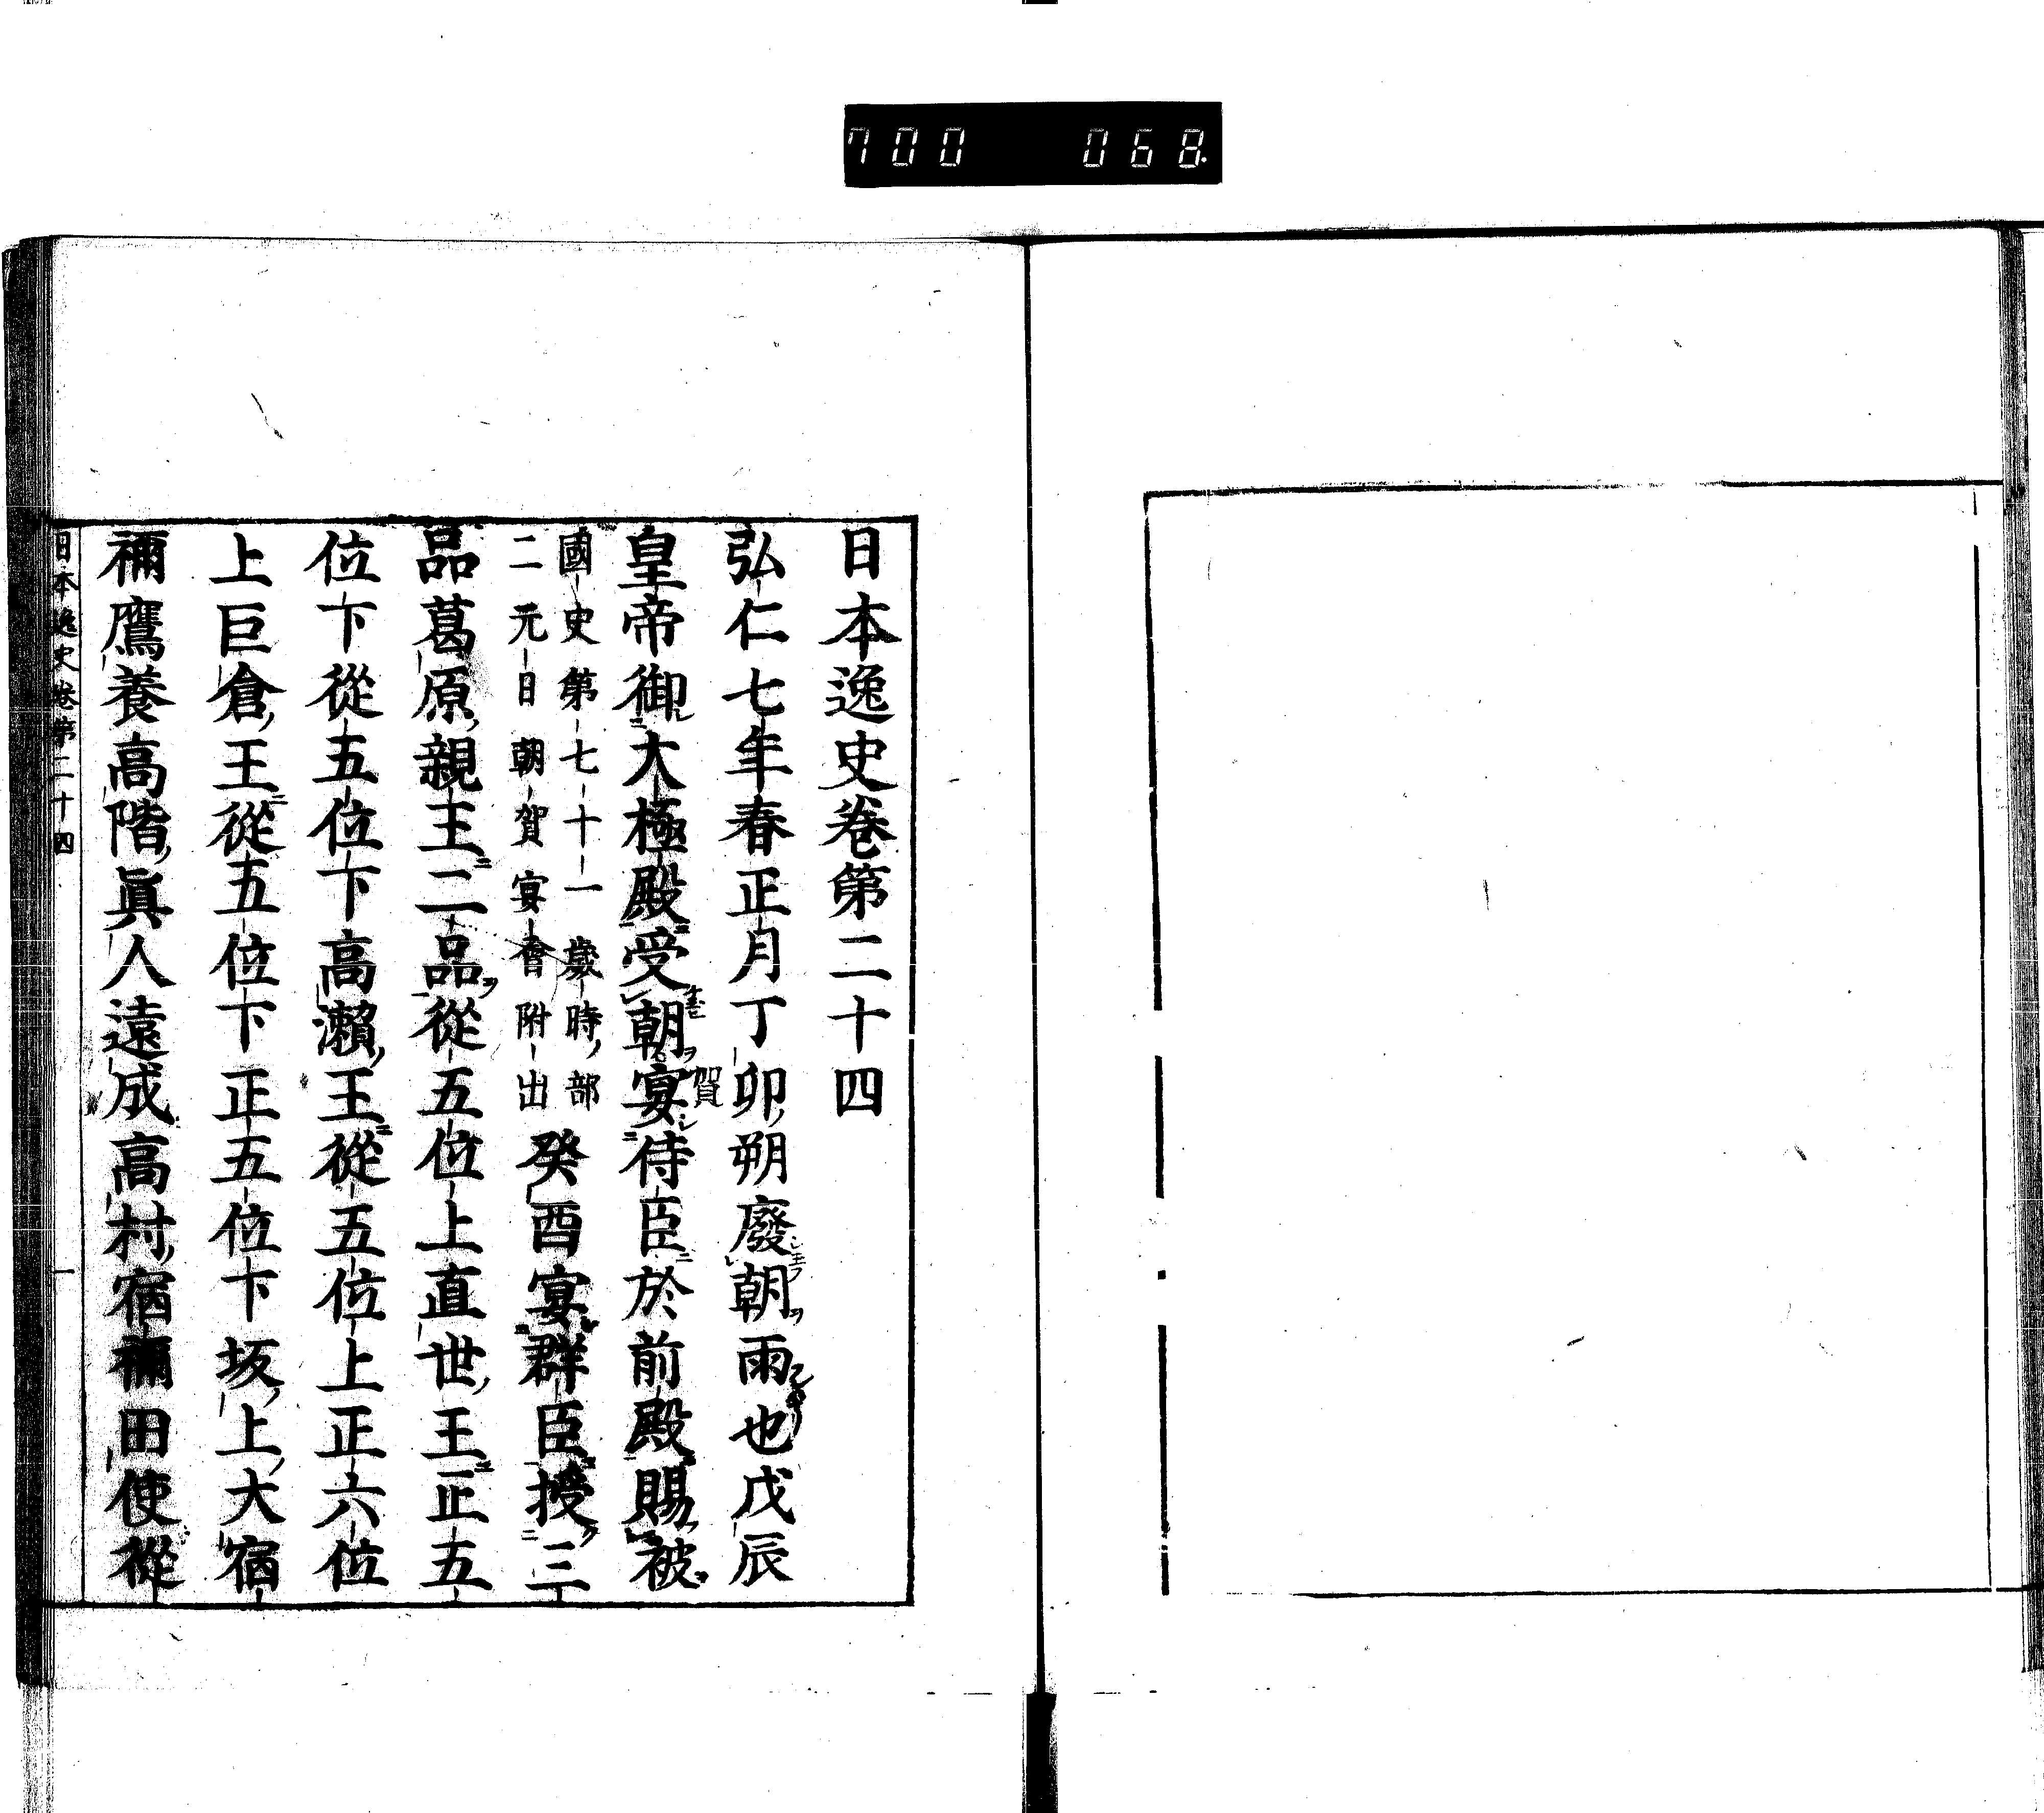 700 068
日本逸史卷第二十四
弘仁七年春正月丁卯朔廢朝雨也戊辰
皇帝御大極殿受朝宴侍臣於前殿賜被
賀
國史第七十一歲時部
二元日朝賀宴會附出
癸酉宴群臣授三
品葛原親王二品從五位上直世王正五
位下從五位下高瀬王從五位上正六位
上巨倉王從五位下正五位下坂上大宿
禰鷹養高階眞人遠成高村宿禰田使從
日本逸史卷第二十四
一